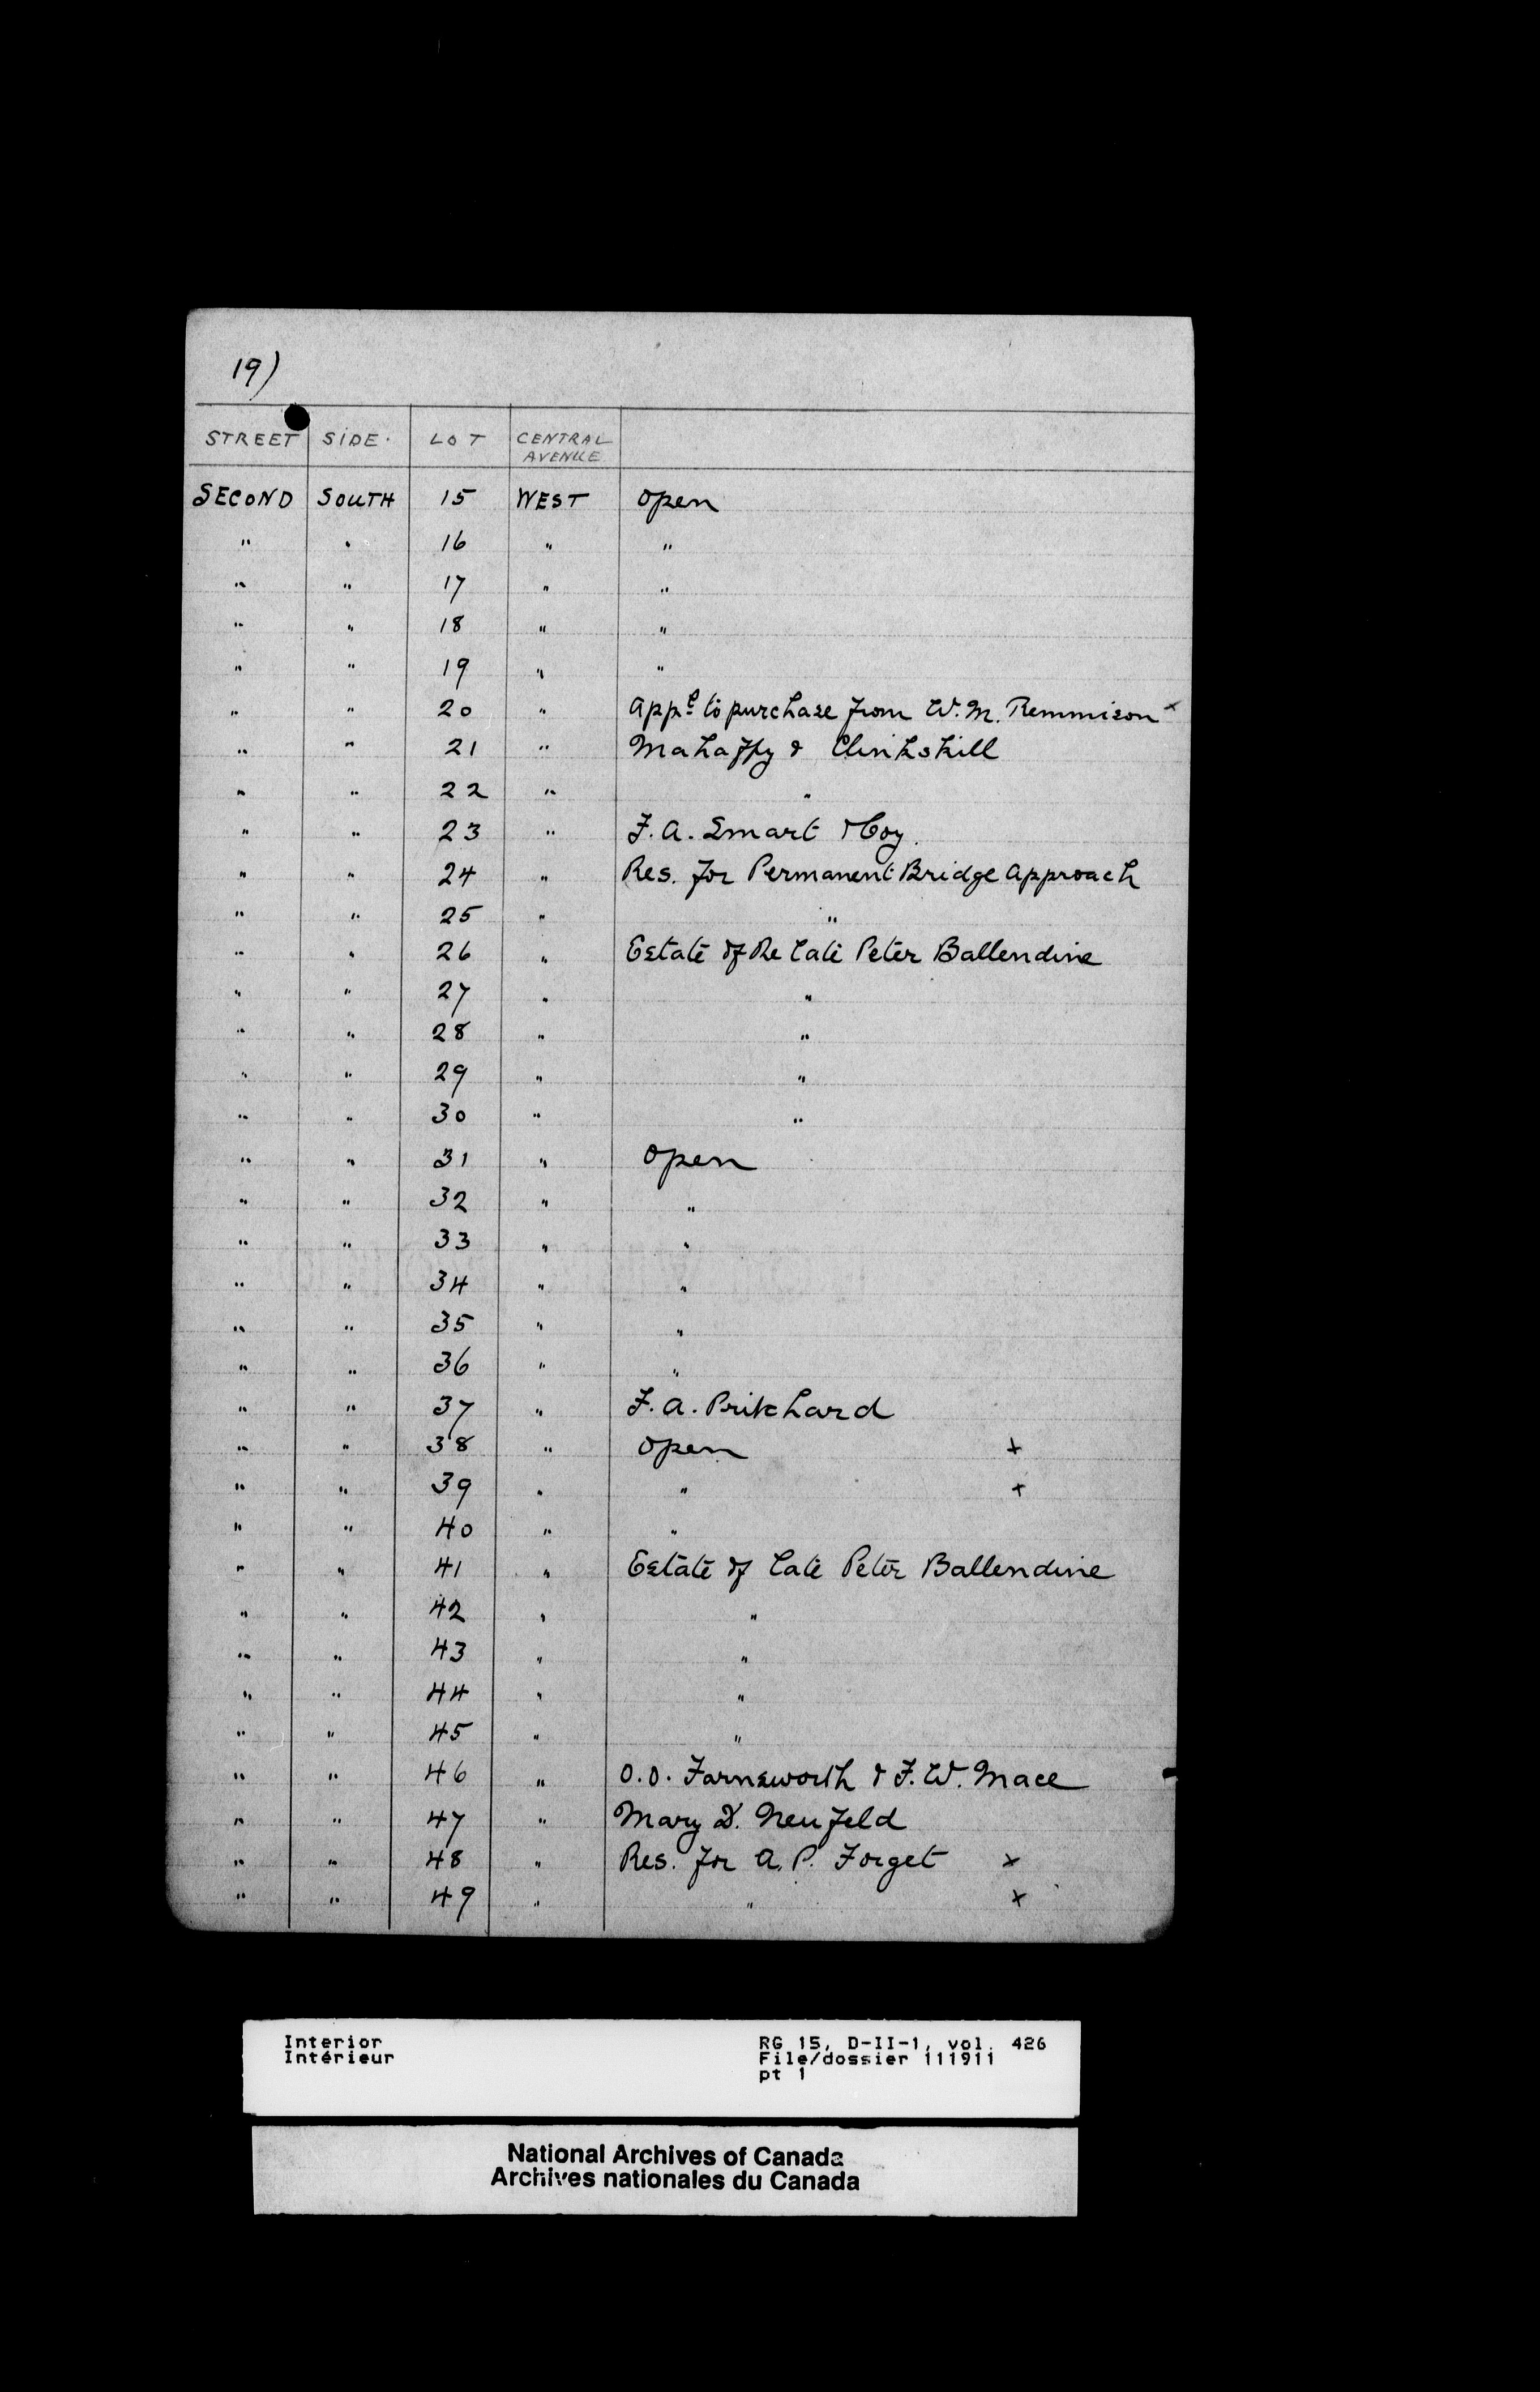 19)
STREET SIDE. LOT CENTRAL AVENUE
SECOND SOUTH 15 WEST Open
" " 16 " "
" " 17 " "
" " 18 " "
" " 19 " "
" " 20 " Appl to purchase from W. M. Remmison x
" " 21 " Mahaffy & Clinkskill
" " 22 " "
" " 23 " F. A. Smart & Coy.
" " 24 " Res. for Permanent Bridge Approach
" " 25 " "
" " 26 " Estate of the late Peter Ballendine
" " 27 " "
" " 28 " "
" " 29 " "
" " 30 " "
" " 31 " Open
" " 32 " "
" " 33 " "
" " 34 " "
" " 35 " "
" " 36 " "
" " 37 " F. A. Pritchard
" " 38 " Open x
" " 39 " " x
" " 40 " "
" " 41 " Estate of late Peter Ballendine
" " 42 " "
" " 43 " "
" " 44 " "
" " 45 " "
" " 46 " O. O. Farnsworth & F. W. Mace
" " 47 " Mary D. Neufeld
" " 48 " Res. for A. P. Forget x
" " 49 " " x
Interior RG 15, D-II-1, vol. 426
Intérieur File/dossier 111911
pt 1
National Archives of Canada
Archives nationales du Canada